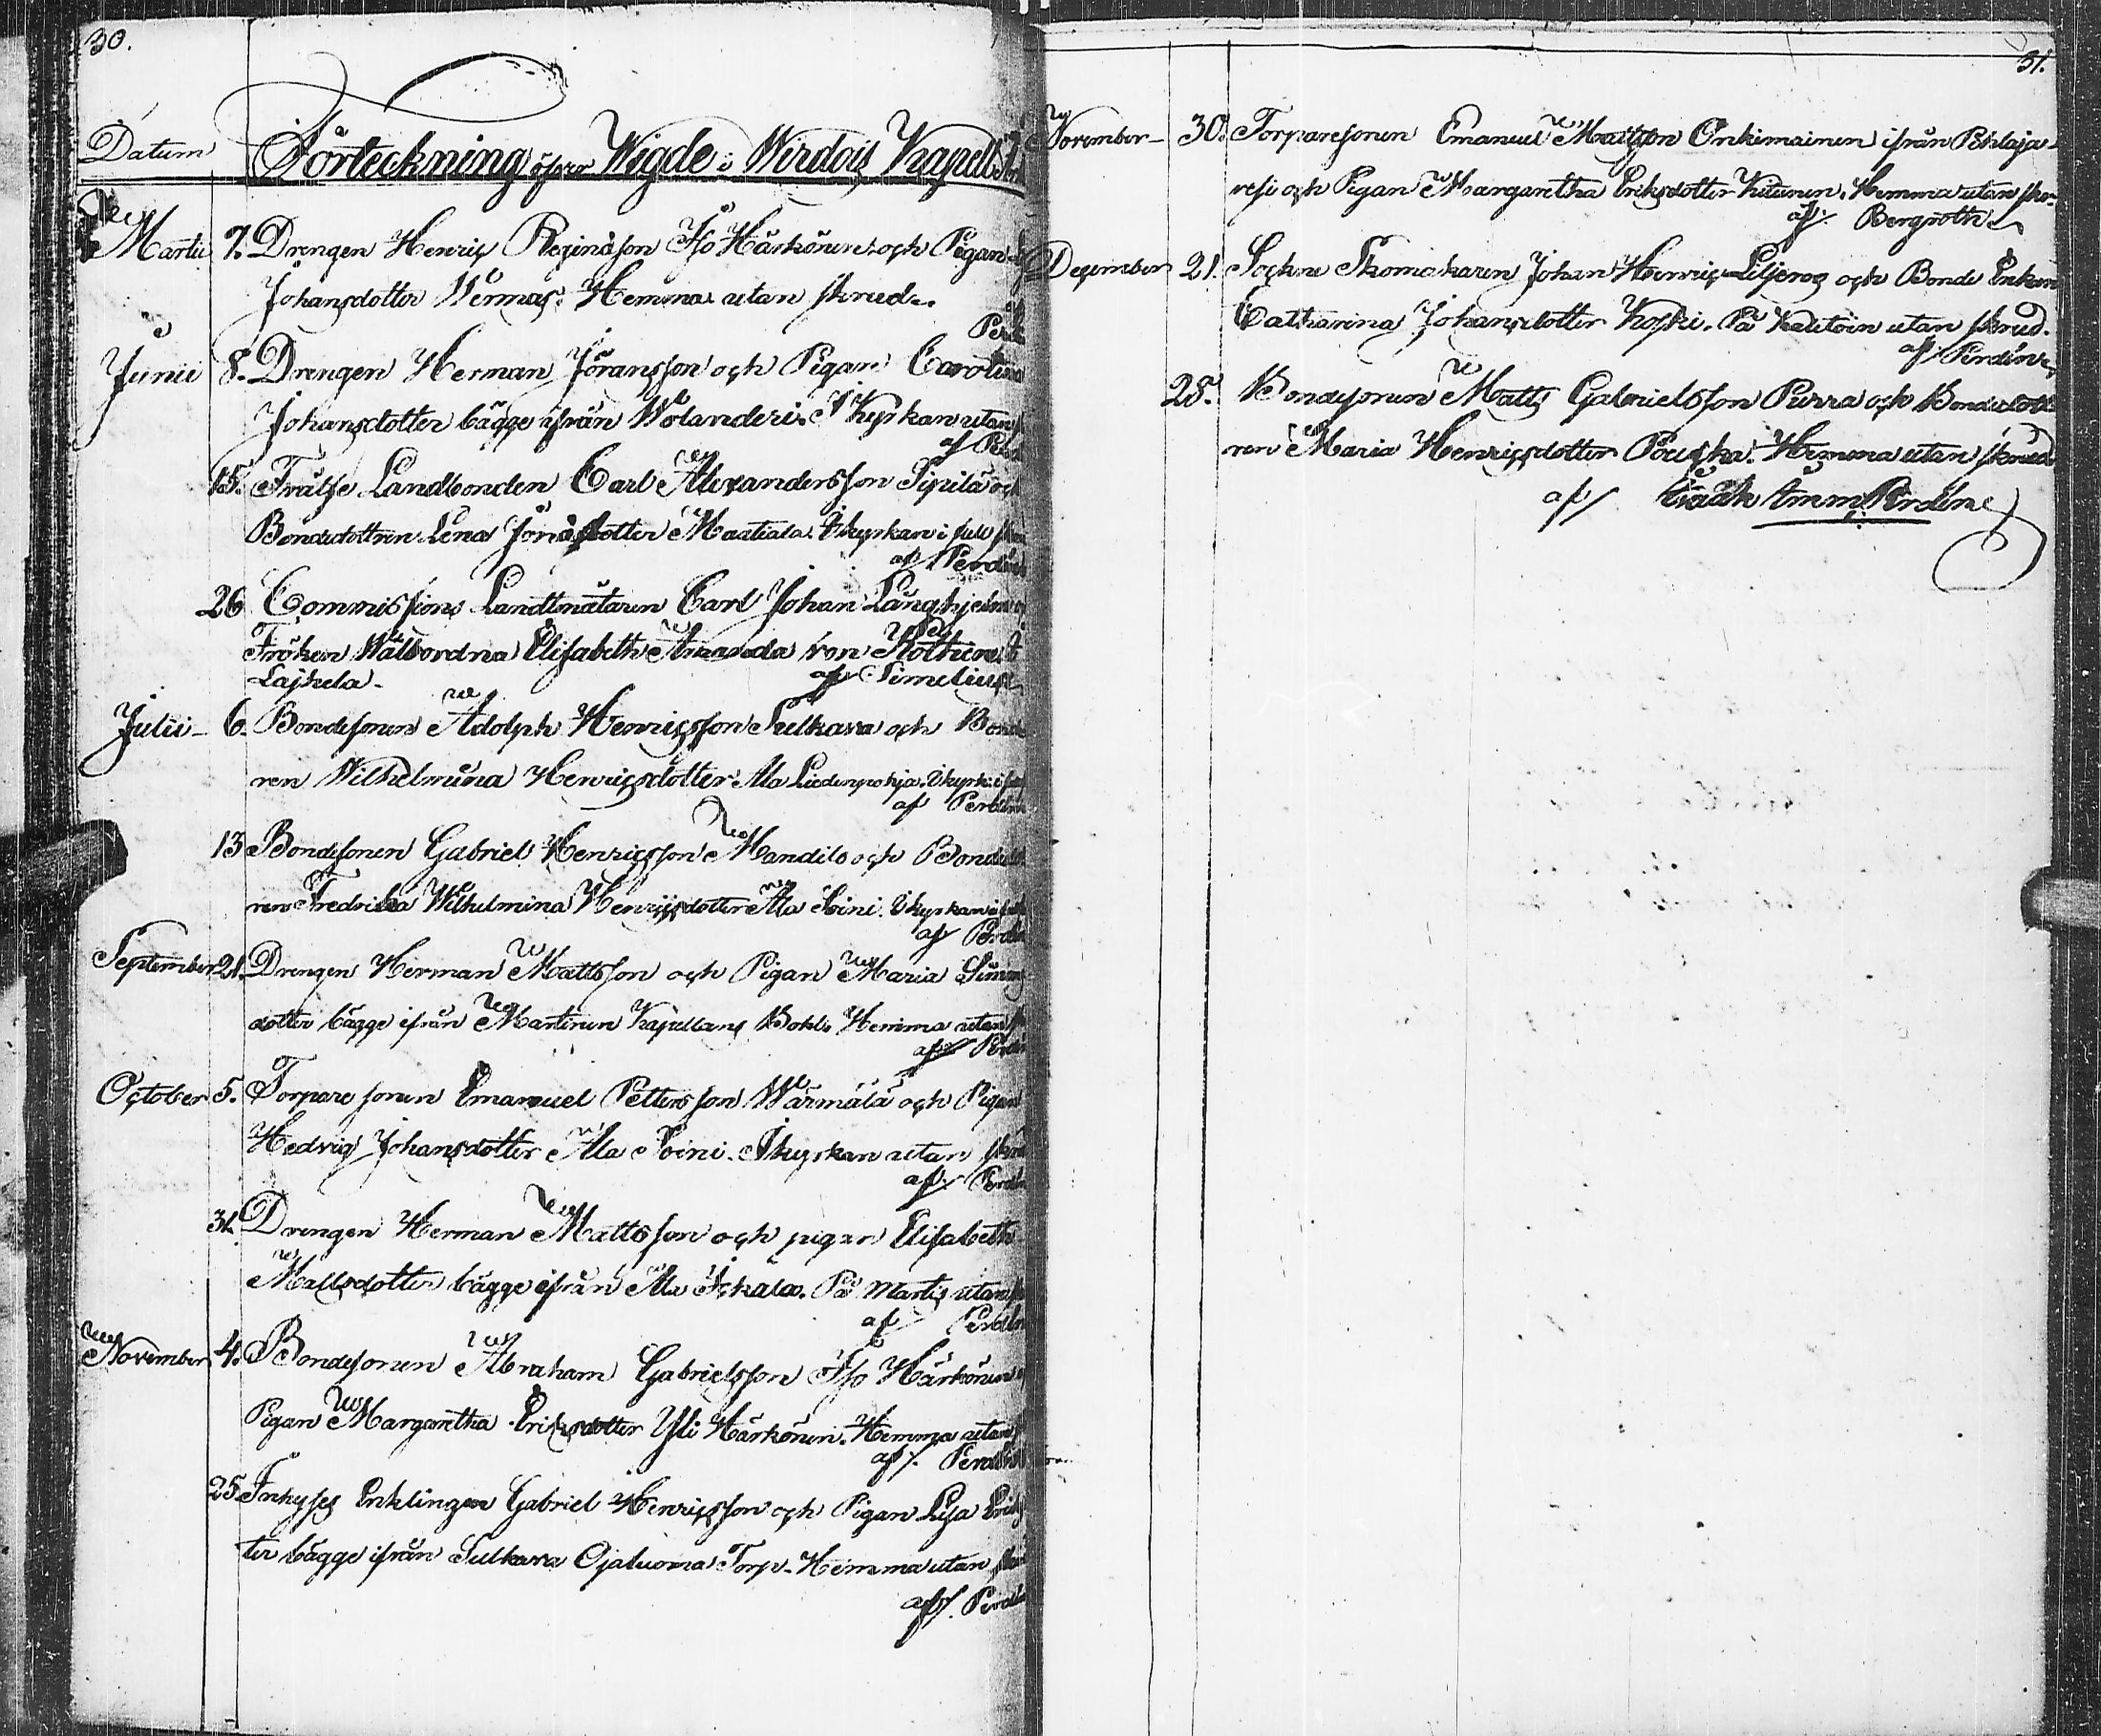 30.
Datum Förteckning öfver Wigde i Wirdois Kapell
Martii 7. Drengen Henric Reginason Iso Härkönen och Pigan
Johansdotter Wermas. Hemma utan skrud.
Junii 8. Drengen Herman Jöransson och Pigan Carolina
Johansdotter bägge ifrån Wolanderi. I Kyrkan utan
af
15. Frälse Landbonden Carl Alexandersson Sipilä och
Bondedottren Lena Jonasdotter Mastiala. I kyrkan i full
af Perdén
26 Commissions Landtmätaren Carl Johan Långhjelm
Fröken Wälbordna Elisabeth Amanda von Kothen
Lajhela. af Simelius
Julii 6. Bondesonen Adolph Henricsson Sulkava och
ren Wilhelmina Henricsdotter Ala Liedenpohja. I kyrk. i
af Perdén
13 Bondesonen Gabriel Henricsson Mandilo och
ren Fredrica Wilhelmina Henricsdotter Ala Soini. I kyrkan i
af
September 21. Drengen Herman Mattsson och Pigan Maria Simons
dotter bägge ifrån Martinen Kapellans Bohl. Hemma utan
af
October 5. Torpare sonen Emanuel Pettersson Wärmälä och Pigan
Hedvig Johansdotter Ala Soini. I kyrkan utan
af
31. Drengen Herman Mattsson och pigan Elisabeth
Mattsdotter bägge ifrån Ala Sckala. På Martis utan
af
November 4. Bondesonen Abraham Gabrielsson Iso Härkönen
Pigan Margaretha Eriksdotter Yli Härkönen. Hemma utan
af Perdén
25 Inhyses Enklingen Gabriel Henricsson och Pigan Lisa
ter bägge ifrån Sulkava Ojaluoma Torp. Hemma utan
af
31.
November 30. Torparesonen Emanuel Mattsson Onkimainen ifrån Pihlaja
vesi och Pigan Margaretha Eriksdotter Kitunen. Hemma utan skr.
af Bergroth
December 21. Sockne Skomakaren Johan Henric Liljeroos och Bonde Enkan
Catharina Johansdotter Koski. På Kaletoin utan skrud.
af Perdén
28. Bondesonen Matts Gabrielsson Purra och
ren Maria Henricsdotter Pouska. Hemma utan skrud
af Isaak Imm Perdén